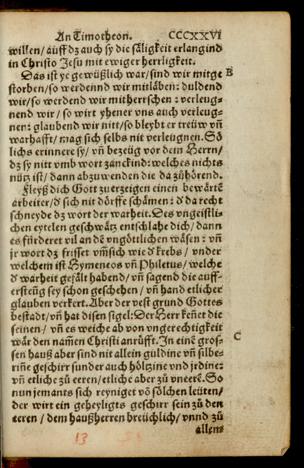 An Timotheon. CCCXXVI
willen/ auff dz auch sy die säligkeit erlangind
in Christo Jesu mit ewiger herrligkeit.
Das ist ye gewüßlich war/ sind wir mitge B
storben/ so werdennd wir mitläben: duldend
wir/ so werdend wir mitherrschen: verleug-
nend wir/ so wirt yhener vns auch verleug-
nen: glaubend wir nitt/ so bleybt er treüw vñ
warhafft/ mag sich selbs nit verleugnen. Sö
lichs erinnere sy/ vñ bezeüg vor dem Herrn/
dz sy nitt vmb wort zanckind: welches nichts
nütz ist/ dann abzuwenden die da zühörend.
Fleyß dich Gott zuerzeigen einen bewärtẽ
arbeiter/ đ sich nit dörffe schämen: đ da recht
schneyde dz wort der warheit. Des vngeistli-
chen eytelen geschwätz entschlahe dich/ dann
es fürderet vil an dẽ vngöttlichen wäsen: vñ
jr wort dz frisset vm̃ sich wie đ krebs/ vnder
welchem ist Hymeneos vñ Philetus/ welche
đ warheit gefält habend/ vñ sagend die auff-
erstẽüg sey schon geschehen/ vñ hand etlicher
glauben verkert. Aber der vest grund Gottes
bestadt/ vñ hat disen sigel: Der Herr keñet die
seinen/ vñ es weiche ab von vngerechtigkeit
wär den nam̃en Christi anrüfft. In einẽ gros- C
sen hauß aber sind nit allein guldine vñ silbe-
riñe geschirr sunder auch höltzine vnd jrdine:
vñ etliche zů eeren/ etliche aber zů vneerẽ. So
nun jemants sich reyniget vō sölchen leüten/
der wirt ein geheyligts geschirr sein zů den
eeren/ dem haußherren breüchlich/ vnnd zů
allem
13